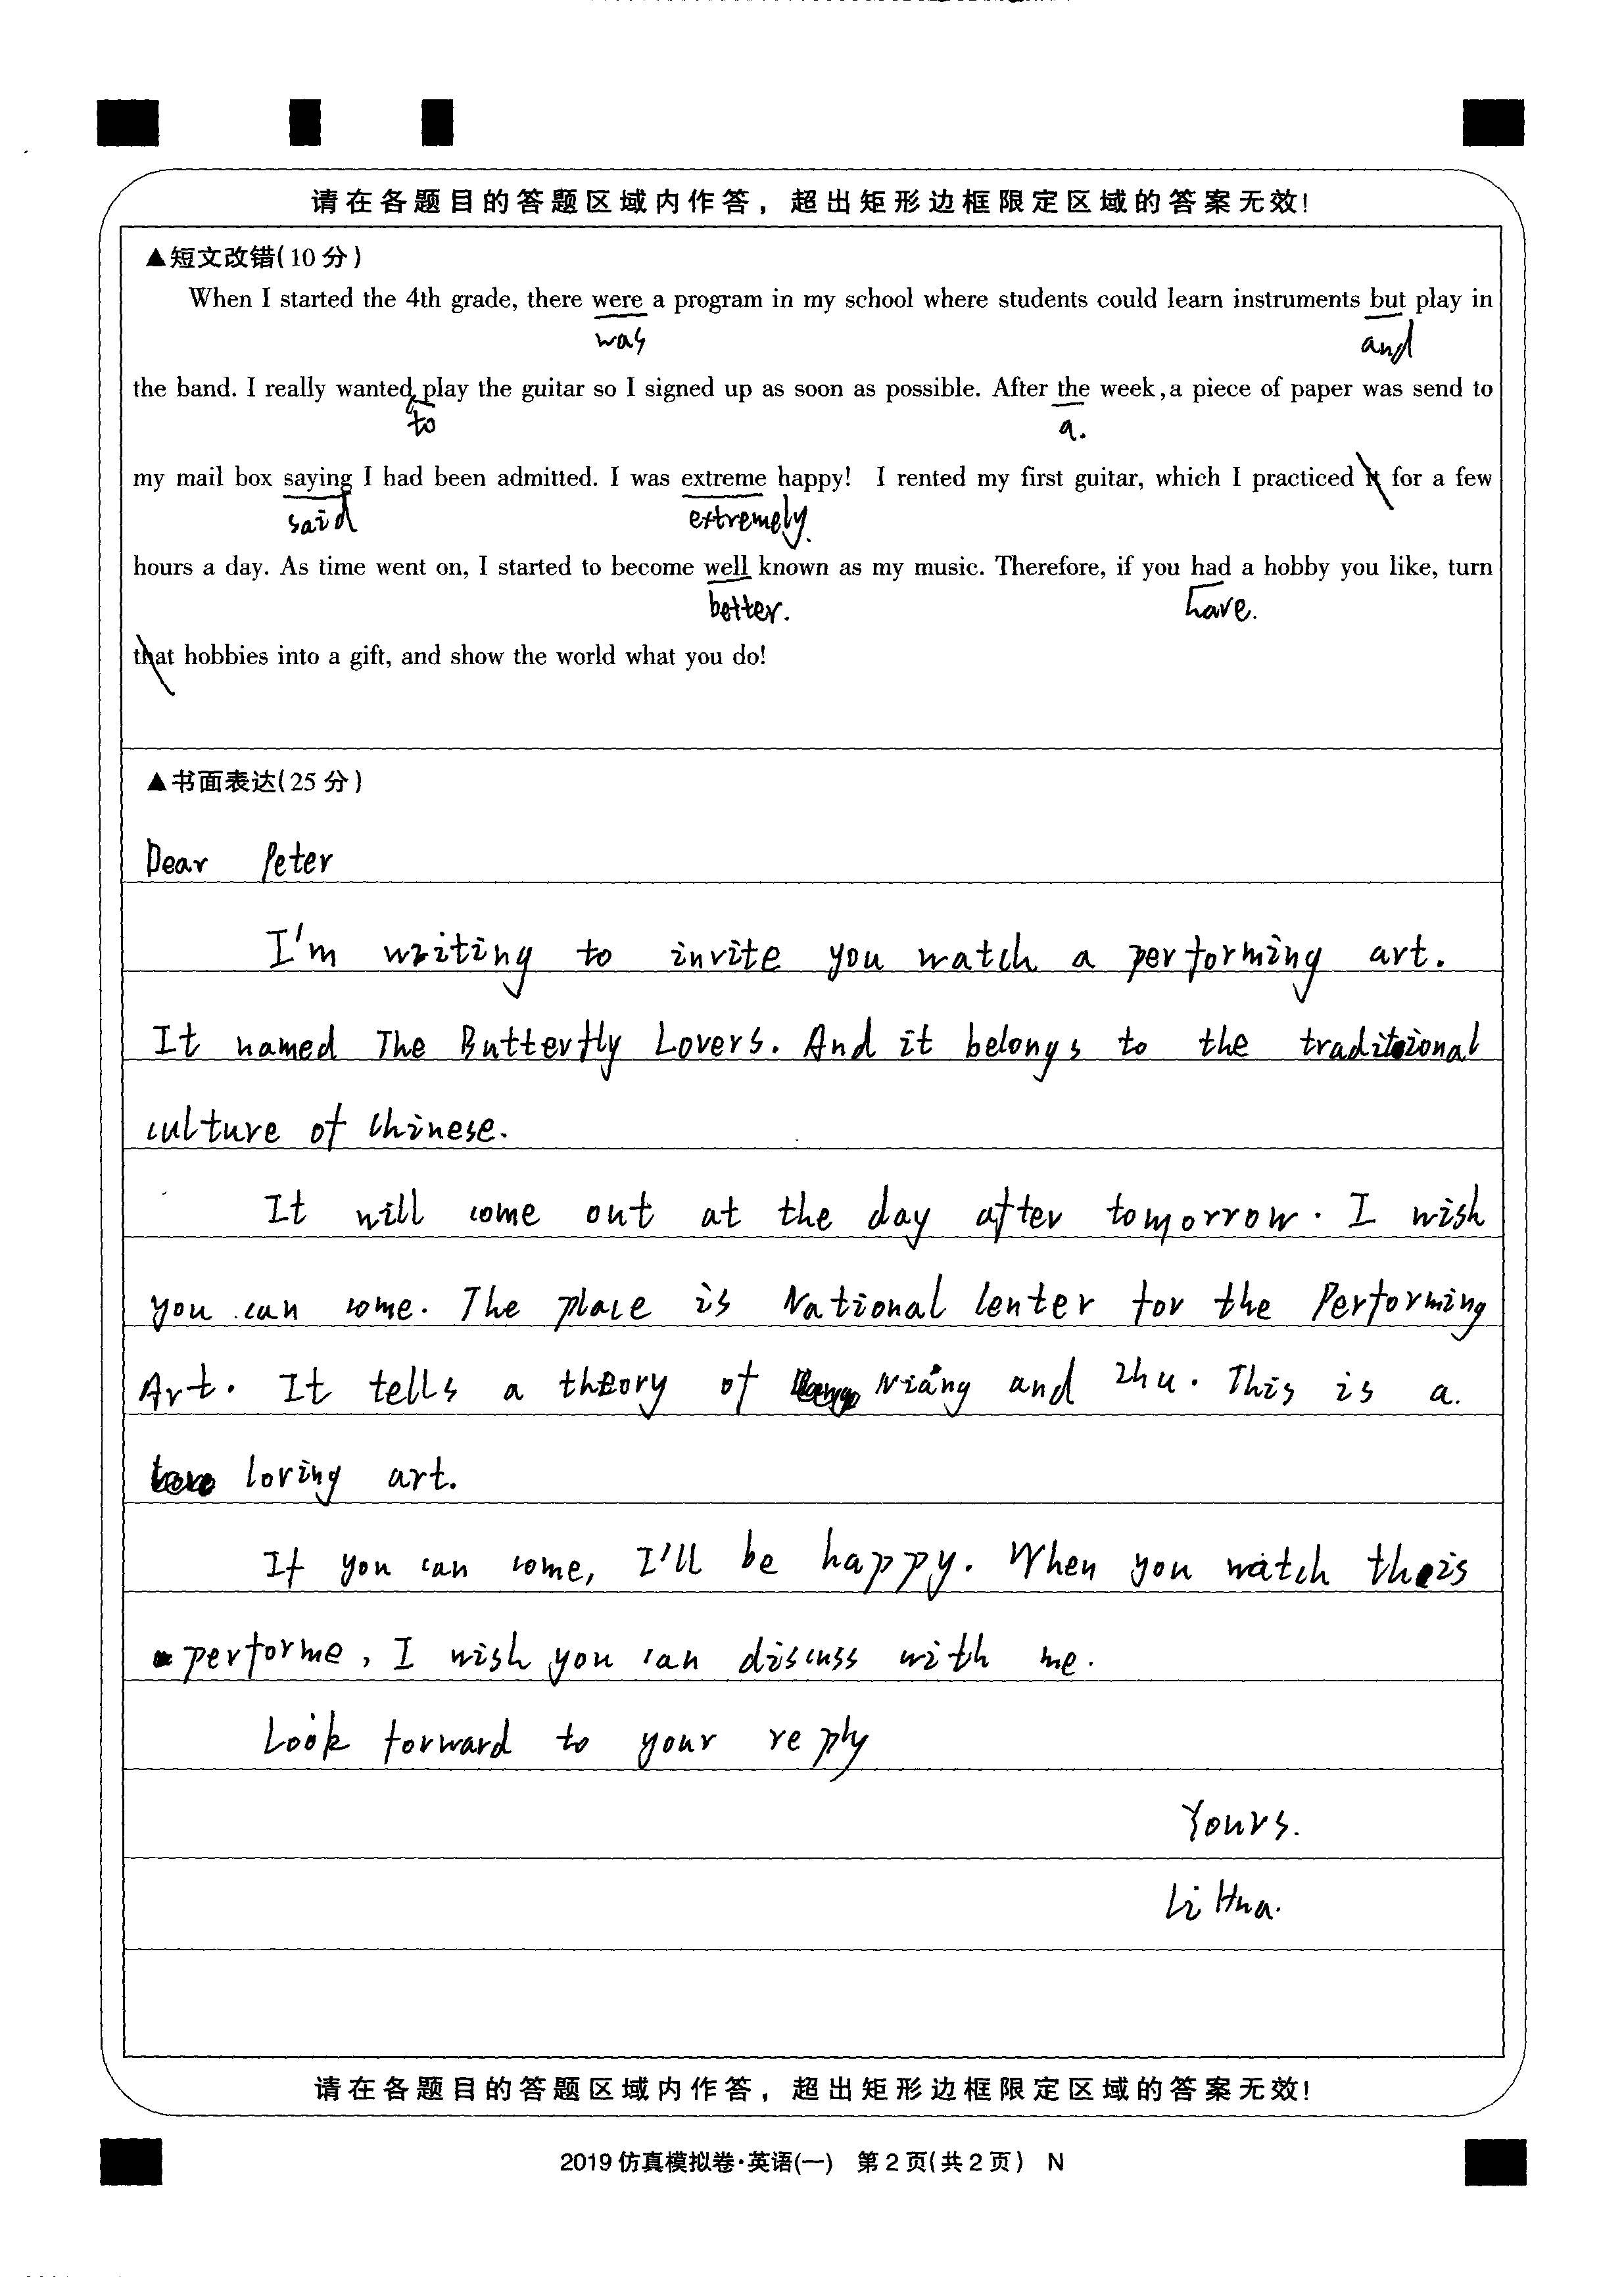 请在各题目的答题区域内作答，超出矩形边框限定区域的答案无效!
▲短文改错(10分)
When I started the 4th grade, there were a program in my school where students could learn instruments but play in
was and
the band. I really wanted play the guitar so I signed up as soon as possible. After the week,a piece of paper was send to
to a.
my mail box saying I had been admitted. I was extreme happy! I rented my first guitar, which I practiced it for a few
said extremely.
hours a day. As time went on, I started to become well known as my music. Therefore, if you had a hobby you like, turn
better. have.
that hobbies into a gift, and show the world what you do!
▲书面表达(25分)
Dear Peter
I'm writing to invite you watch a performing art.
It named The Butterfly Lovers. And it belongs to the traditional
culture of Chinese.
It will come out at the day after tomorrow. I wish
you can come. The place is National Center for the Performing
Art. It tells a theory of Niang and Zhu. This is a.
loving art.
If you can come, I'll be happy. When you watch this
performe, I wish you can discuss with me.
Look forward to your reply
Yours.
Li Hua.
请在各题目的答题区域内作答，超出矩形边框限定区域的答案无效!
2019仿真模拟卷·英语(一) 第2页(共2页) N